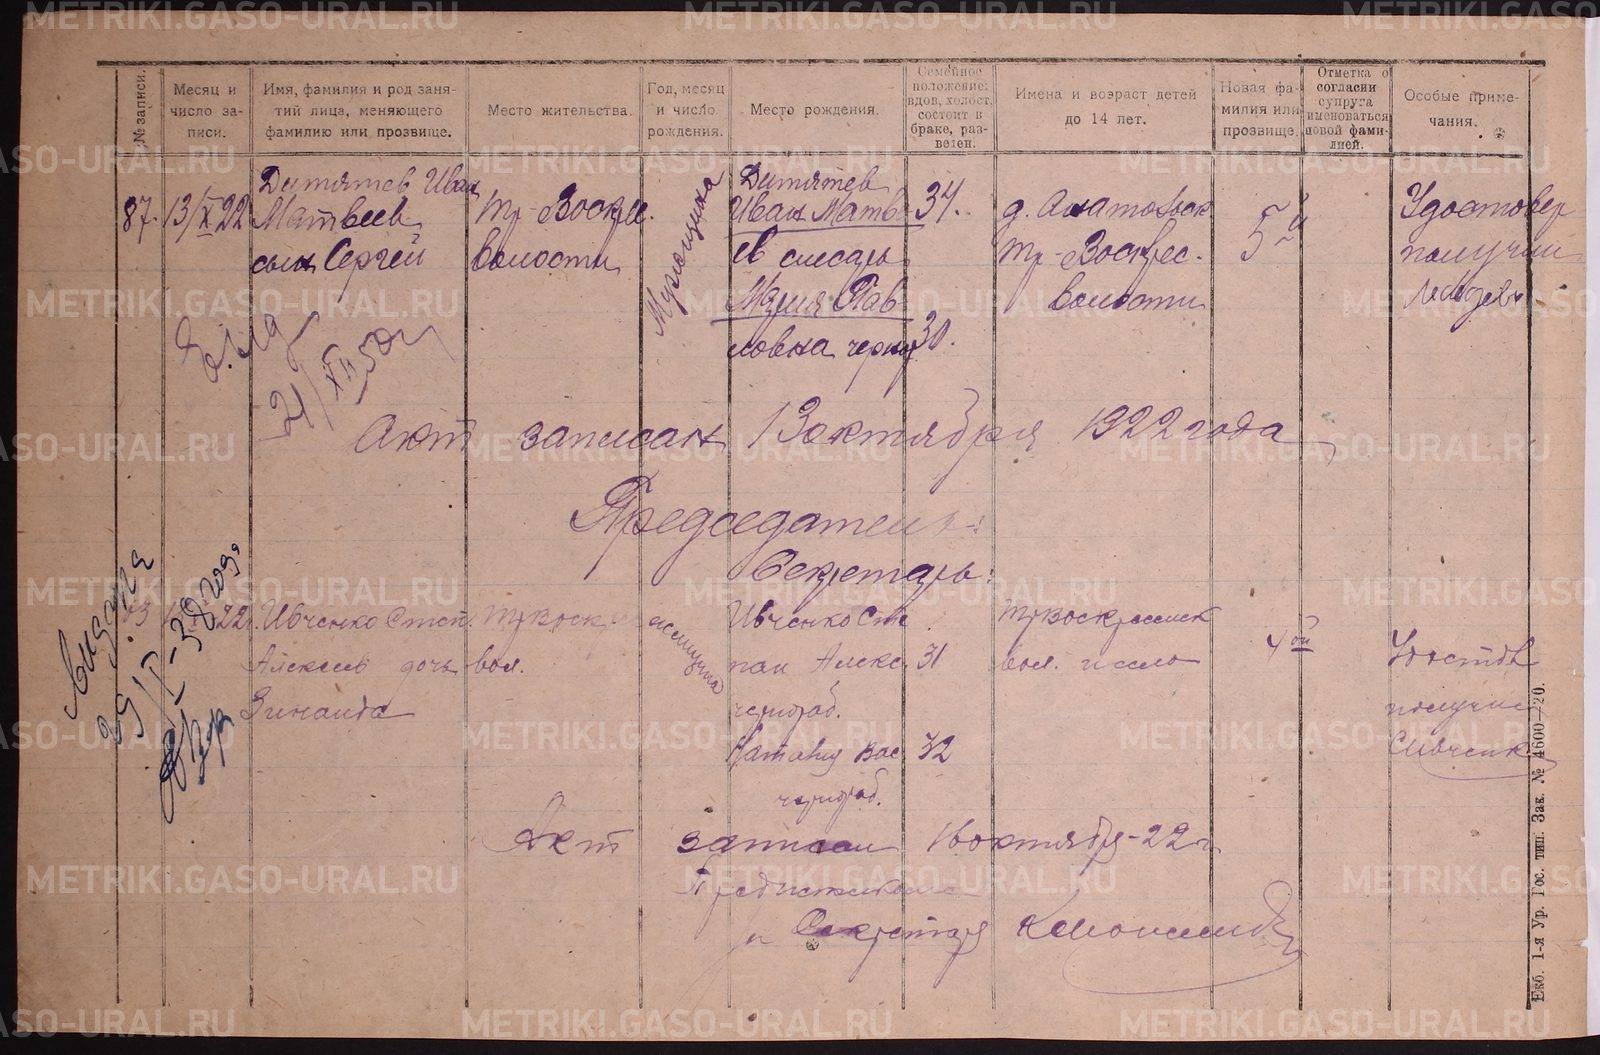 № записи.
Месяц и число записи.
Имя, фамилия и род занятий лица, меняющего фамилию или прозвище.
Место жительства.
Год, месяц и число рождения.
Место рождения.
Семейное положение: вдов, холост, состоит в браке, разведен.
Имена и возраст детей до 14 лет.
Новая фамилия или прозвище.
Отметка о согласии супруга именоваться новой фамилией.
Особые примечания.
87. 13/X 22
Дитятев Иван
Матвеев
сын Сергей
Тр-Воскрес.
волости
Мужчина
Дитятев
Иван Матве
ев слесарь
Мария Пав
ловна черно
34.
30.
д.
Тр-Воскрес.
волости
5й
Удостовер
получил
21/XII 50г
Акт записан 13 октября 1922 года
Председатель:
Секретарь:
22г.
Ивченко Степ.
Алексеев дочь
Зинаида
Тр Воск
вол.
Ивченко Сте
пан Алекс.
чернораб.
Наталия Вас
чернораб.
31
32
Тр Воскресенск
вол. и село
4ой
Удостов
получил
Акт записан 16 октября-22 г.
и Секретарь
Екб. 1-я Ур. Гос. тип. Зак. № 4600—20.
METRIKI.GASO-URAL.RU